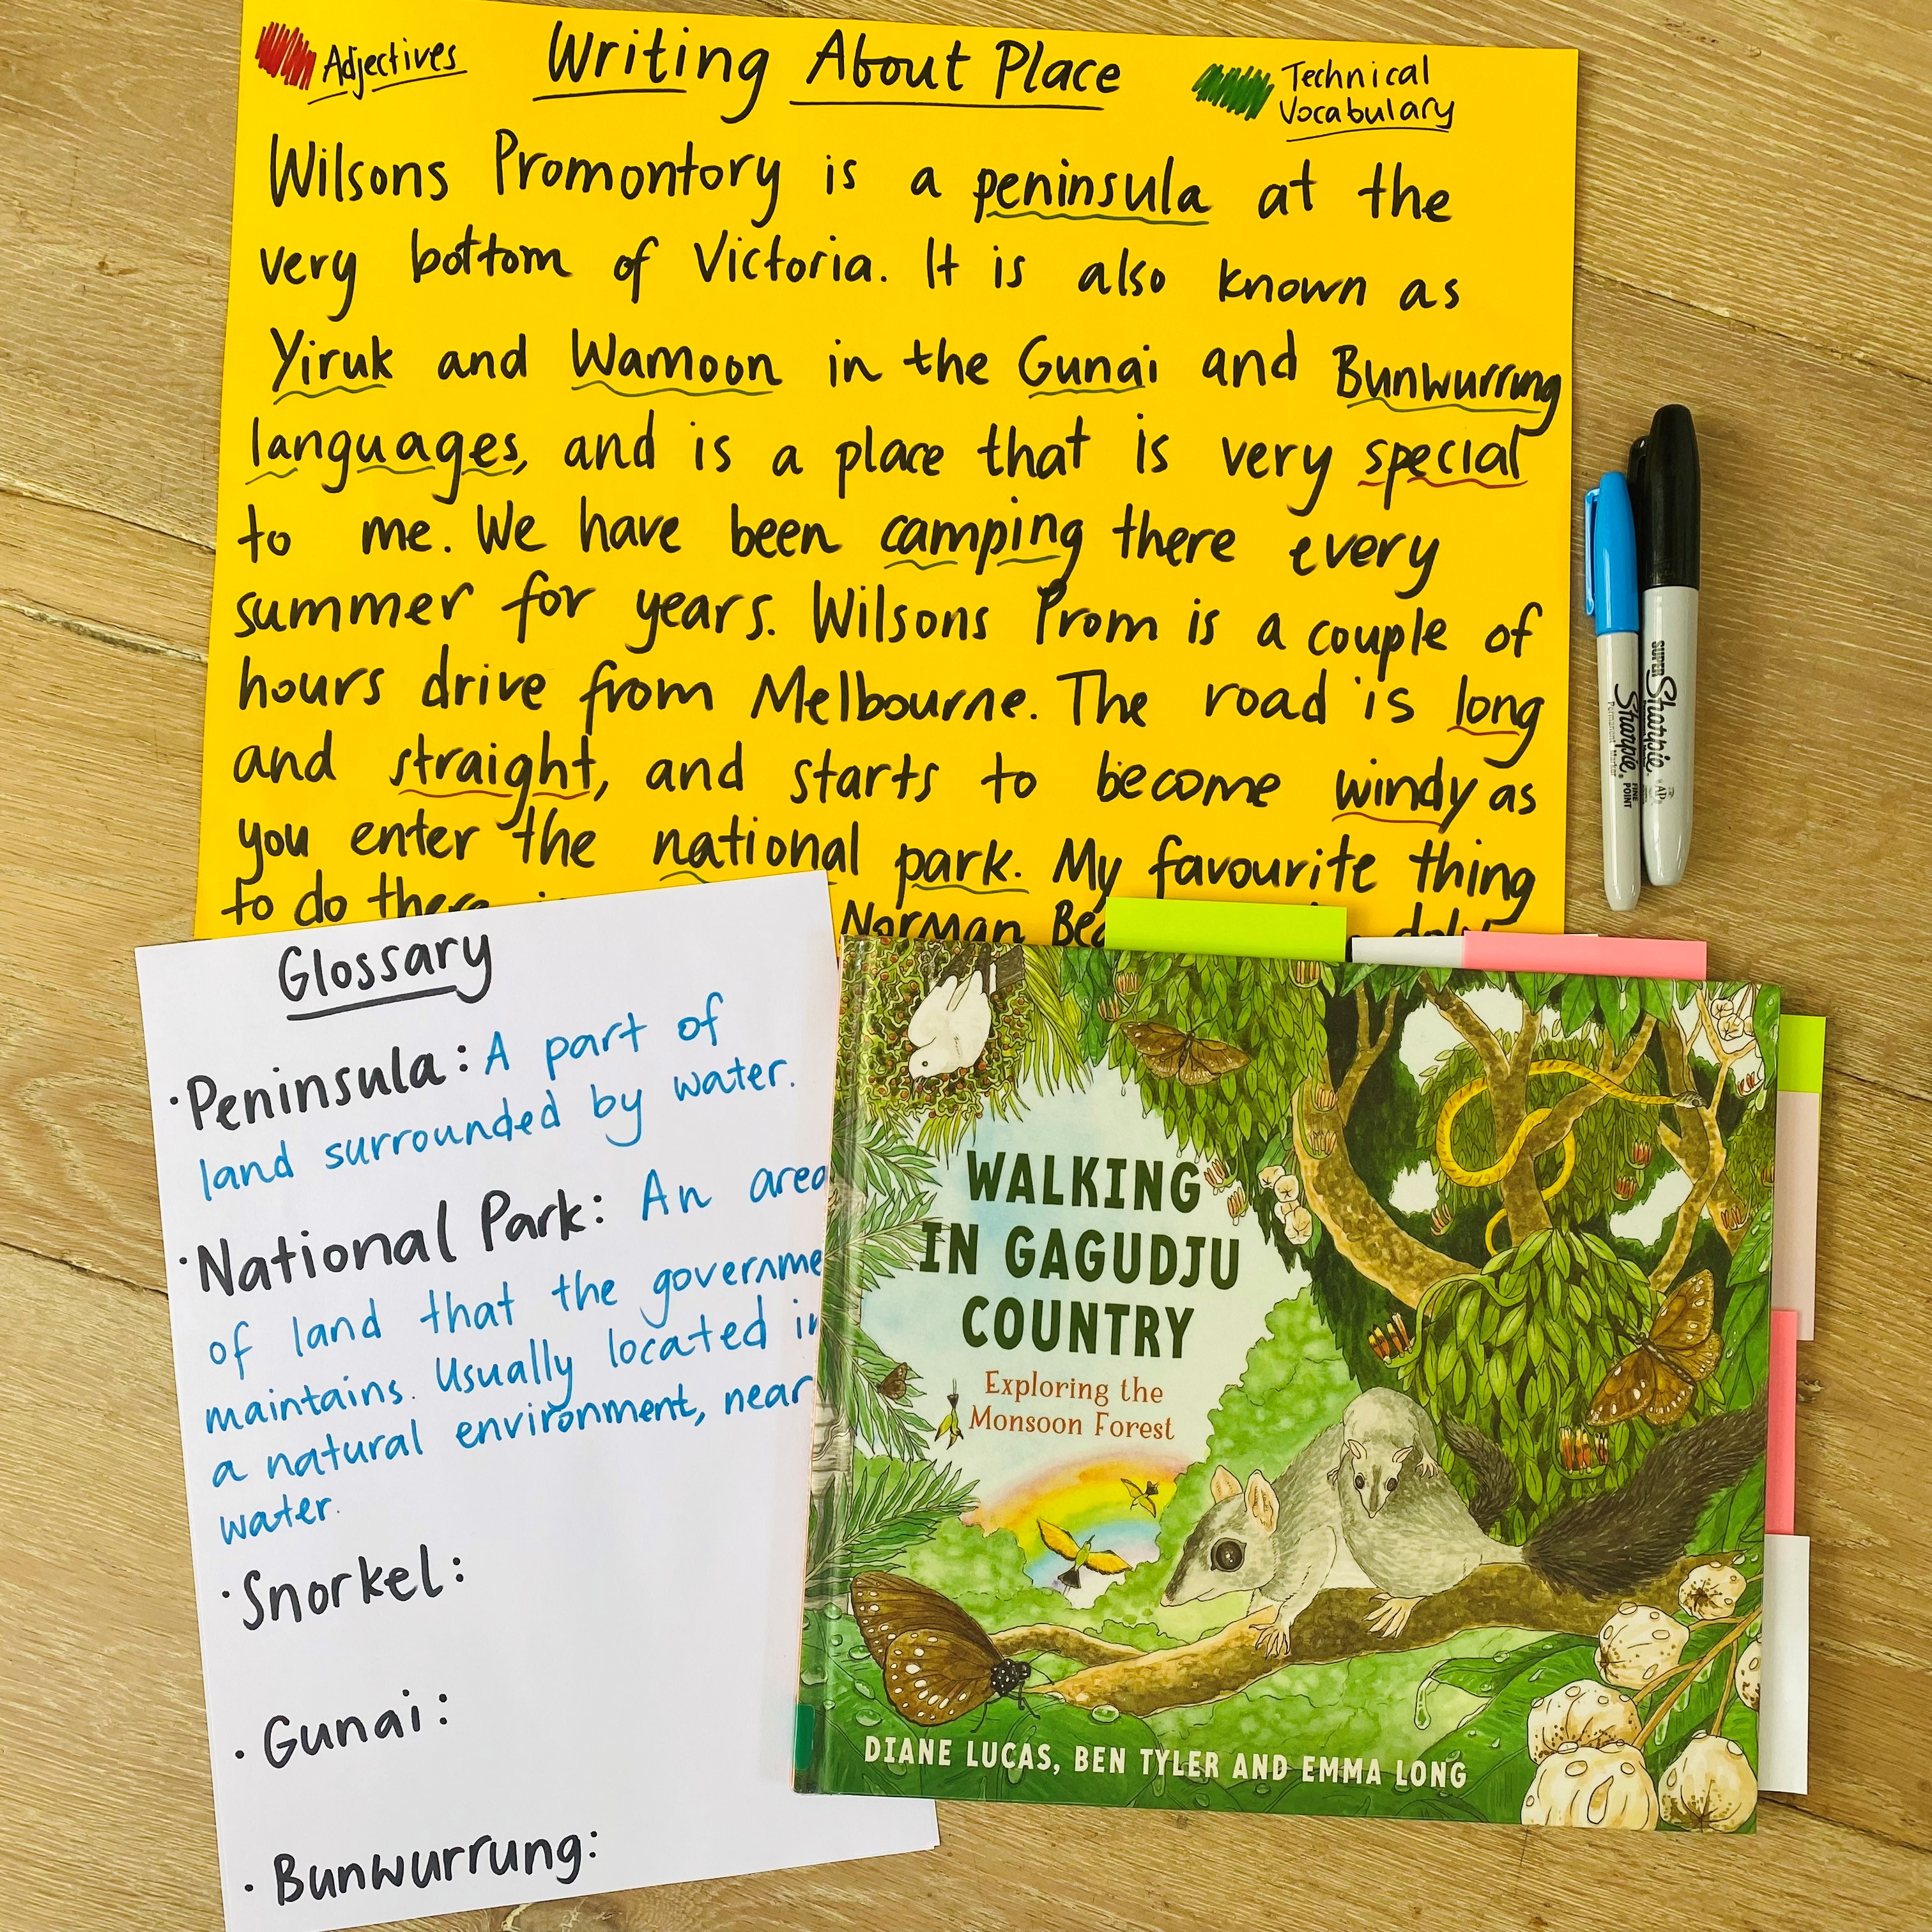 Adjectives
Writing About Place
Technical
Vocabulary
Wilsons Promontory is a peninsula at the
very bottom of Victoria. It is also known as
Yiruk and Wamoon in the Gunai and Bunwurrung
languages, and is a place that is very special
to me. We have been camping there every
summer for years. Wilsons Prom is a couple of
hours drive from Melbourne. The road is long
and straight, and starts to become windy as
you enter the national park. My favourite thing
to do there Norman
SUPER Sharpie.
Sharpie. FINE POINT
Permanent Marker
Glossary
·Peninsula: A part of
land surrounded by water.
·National Park: An area
of land that the
maintains. Usually located in
a natural environment, near
water.
·Snorkel:
·Gunai:
·Bunwurrung:
WALKING
IN GAGUDJU
COUNTRY
Exploring the
Monsoon Forest
DIANE LUCAS, BEN TYLER AND EMMA LONG